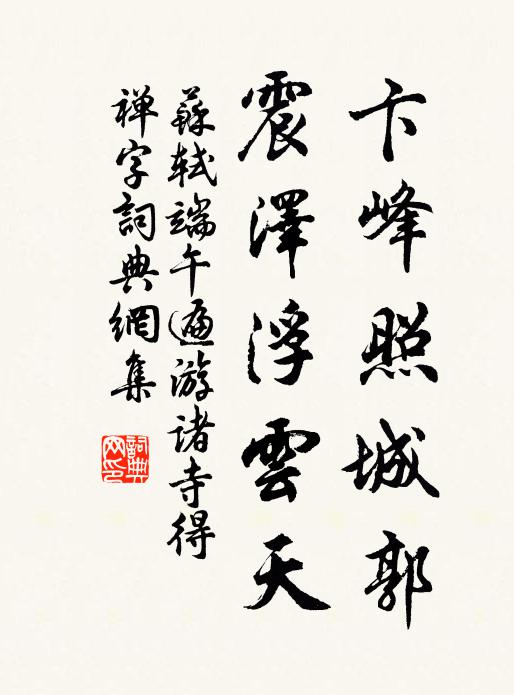 卞峰照城郭
震澤浮雲天
蘇軾端午遍游諸寺得
禅字詞典網集
詞典
网印